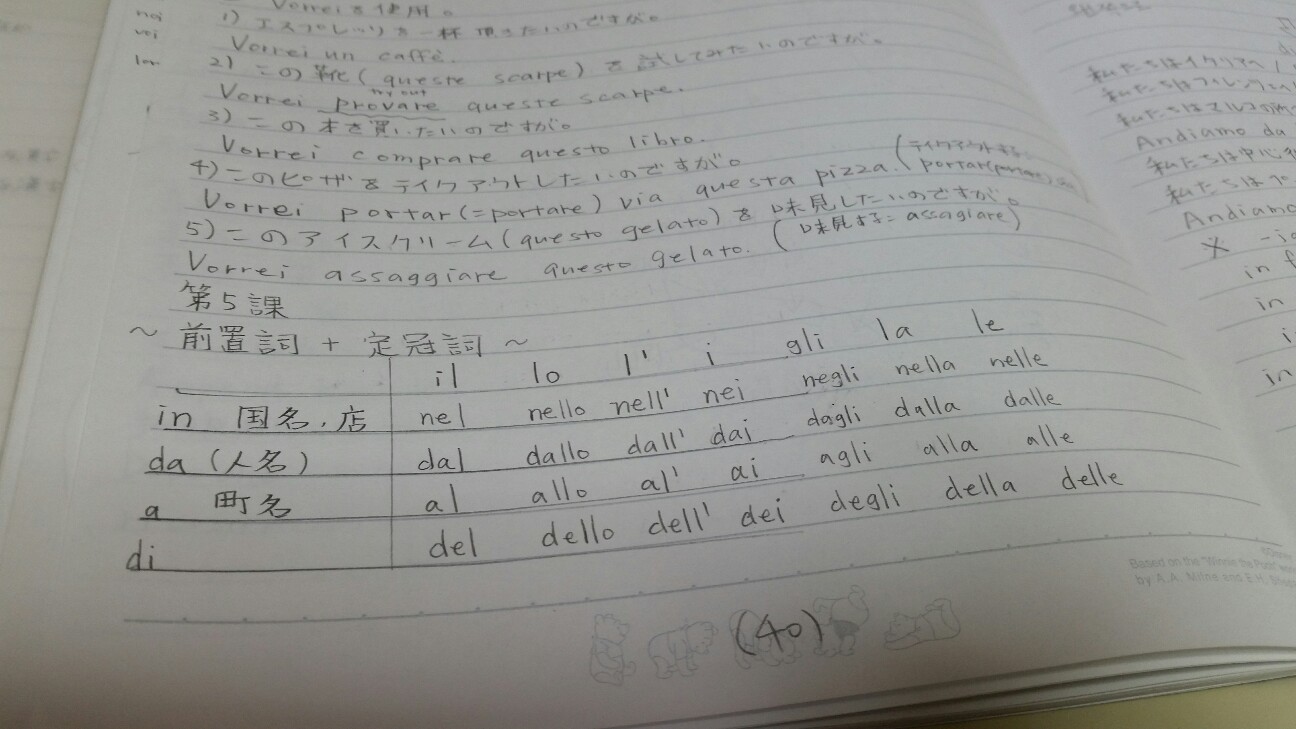 Vorreiを使用。
noi
voi
1) エスプレッソを一杯頂きたいのですが。
Vorrei un caffè.
2) この靴(queste scarpe)を試してみたいのですが。
try out
Vorrei provare queste scarpe.
3) この本を買いたいのですが。
Vorrei comprare questo libro.
4) このピザをテイクアウトしたいのですが。
Vorrei portar(=portare) via questa pizza.
(テイクアウトする
5) このアイスクリーム(questo gelato)を味見したいのですが。
(味見する= assagiare)
Vorrei assaggiare questo gelato.
第5課
~ 前置詞 + 定冠詞 ~
il lo l' i gli la le
in 国名.店 nel nello nell' nei negli nella nelle
da (人名) dal dallo dall' dai dagli dalla dalle
a 町名 al allo al' ai agli alla alle
di del dello dell' dei degli della delle
(40)
Based on the "Winnie the Pooh"
by A.A. Milne and E.H.
私たちは
私たちは
私たちは
Andiamo da
私たちは中心
私たちは
Andiamo
in
in
in